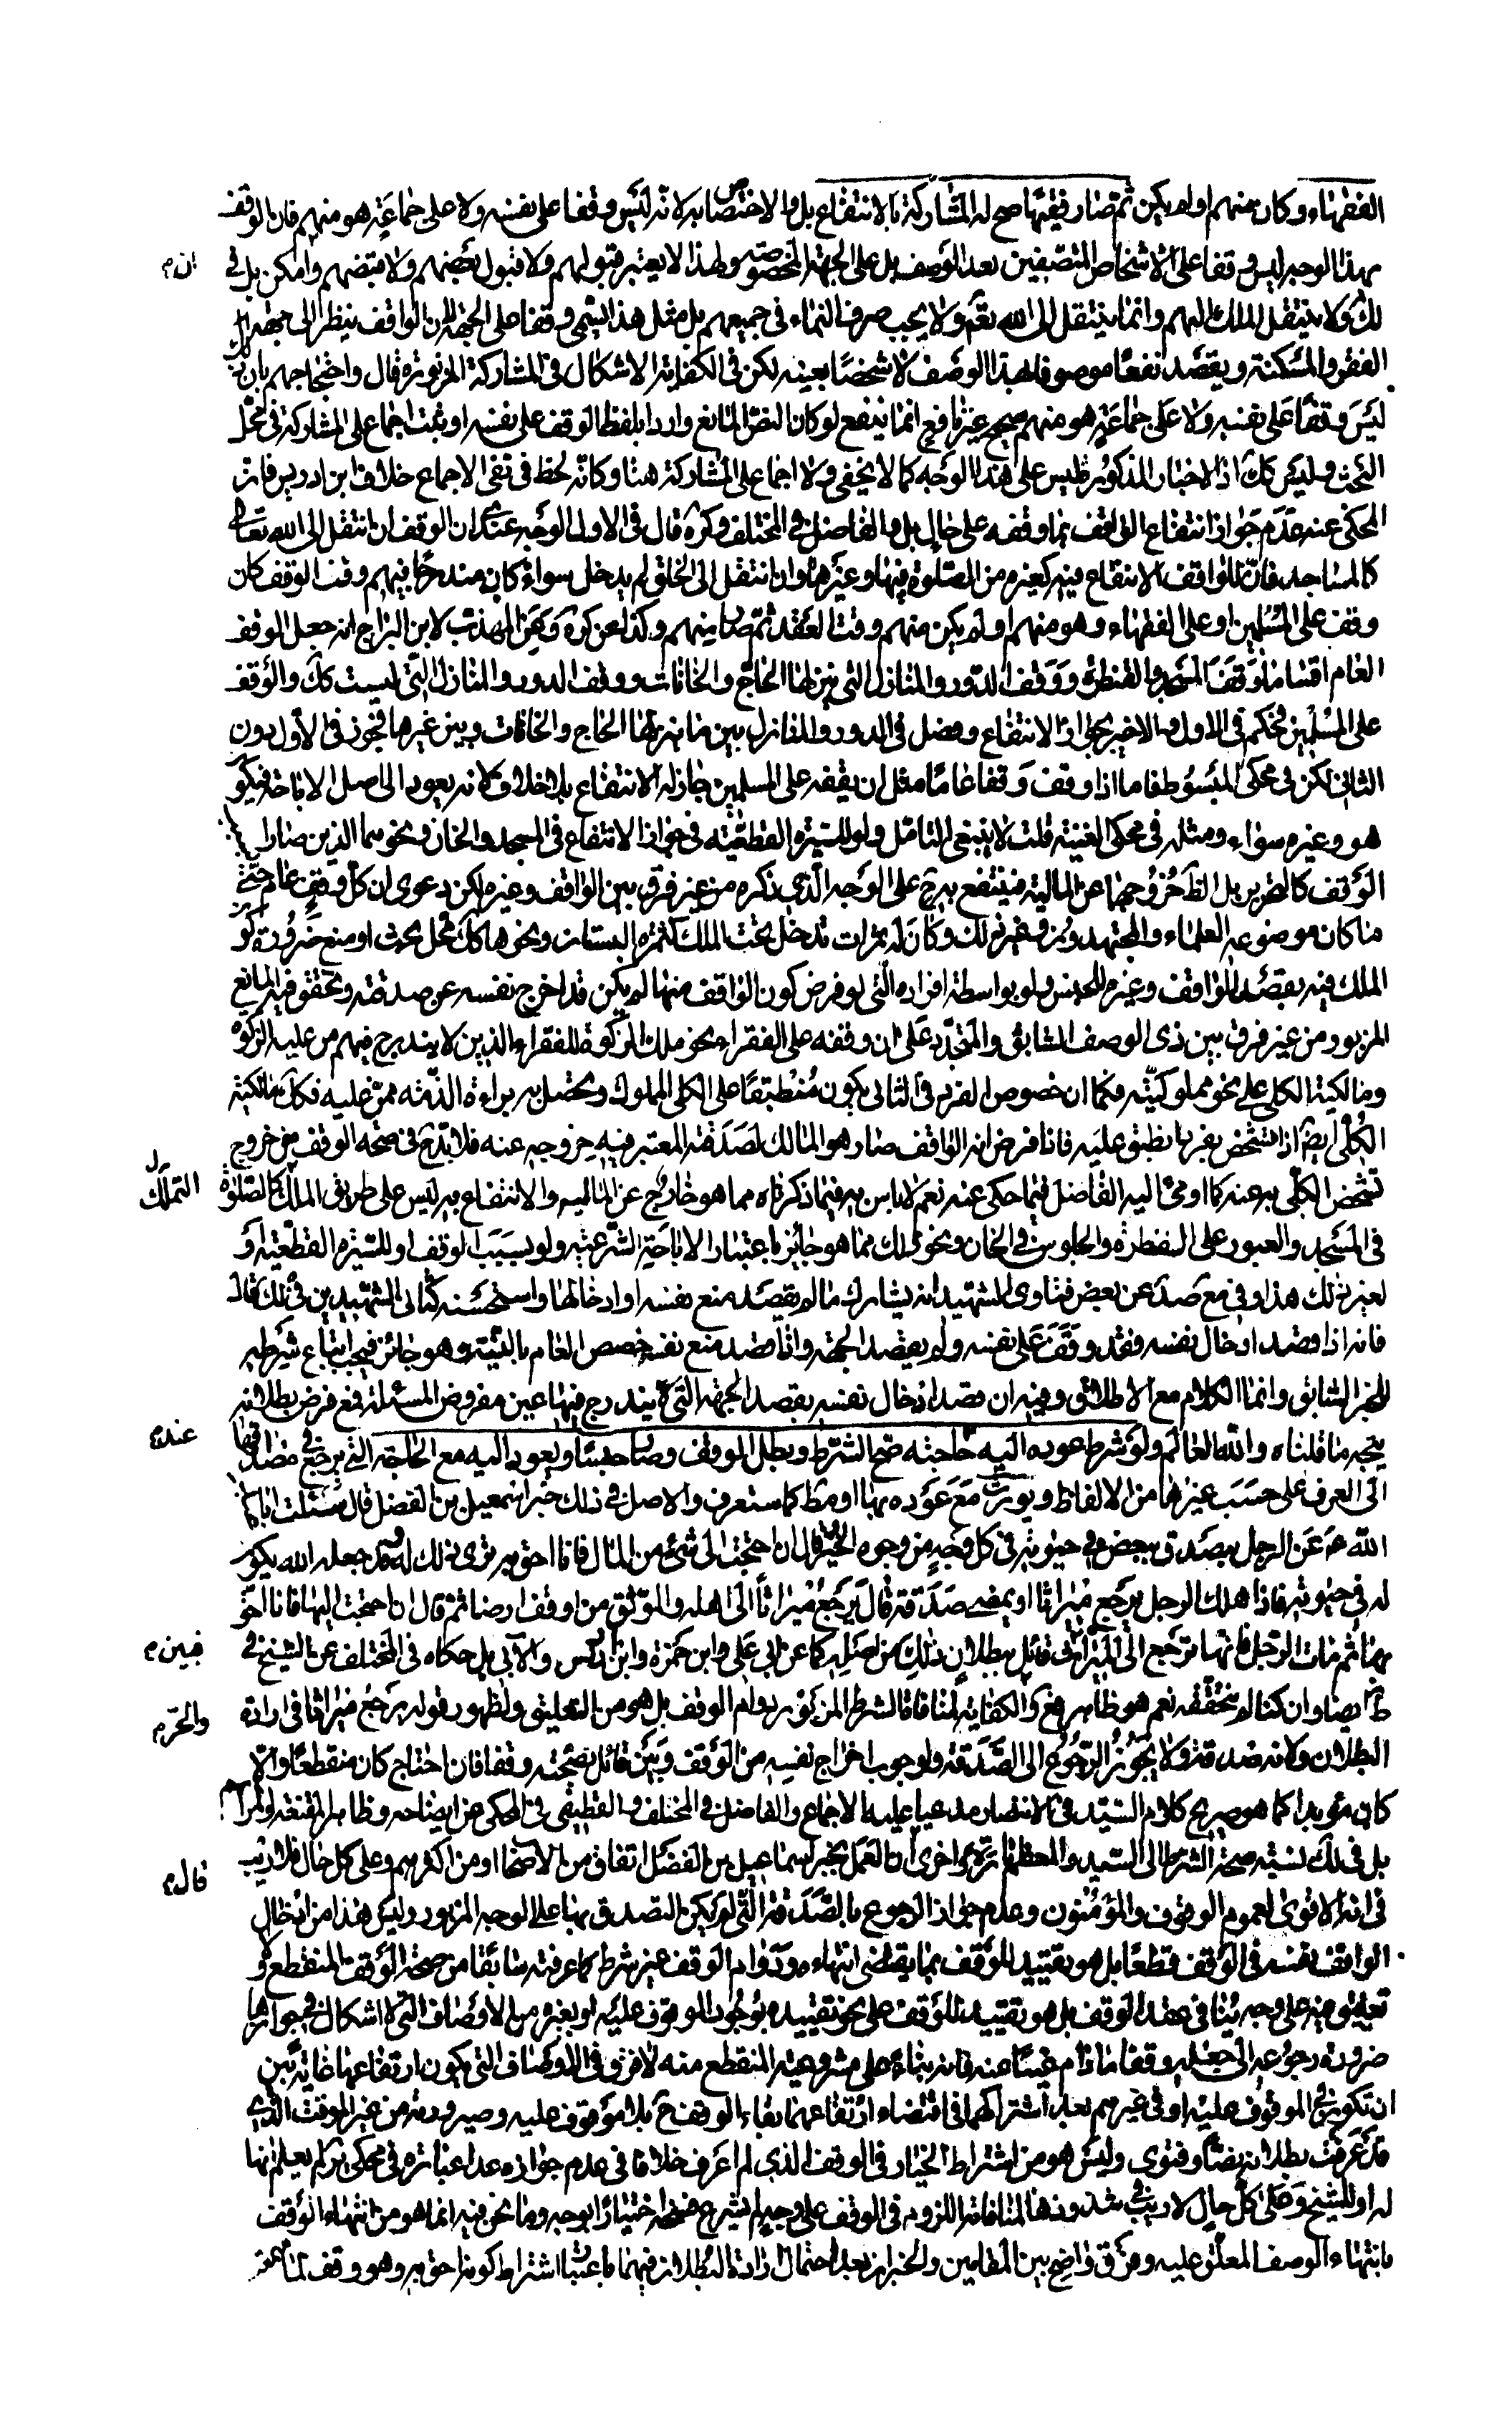 الفقهاء وكان منهم او لم يكن ثم صار فقيها صح له المشاركة بالانتفاع بل والاختصاص به لانه ليس وقفا على نفسه ولا على جماعة هو منهم فان الوقف
بهذا الوجه ليس وقفا على الاشخاص المتصفين بعد الوصف بل على الجهة المخصوصة ولهذا لا يعتبر قبولهم ولا قبول بعضهم ولا قبضهم وان امكن بل في
ذلك ولا ينتقل الملك اليهم وانما ينتقل الى الله تعم ولا يجب صرف النماء في جميعهم بل مثل هذا يسمى وقفا على الجهة لان الواقف ينظر الى جهة
الفقر والمسكنة ويقصد نفعا موصوفا بهذا الوصف لا شخصا بعينه لكن في الكفاية الاشكال في المشاركة المزبورة قال واحتجاجهم بان
ليس وقفا على نفسه ولا على جماعة هو منهم صحيح غير نافع انما ينفع لو كان النص المانع واردا بلفظ الوقف على نفسه او ثبت اجماع على المشاركة في محل
البحث وليس كك اذ الاخبار المذكور ليس على هذا الوجه كما لا يخفى ولا اجماع على المشاركة هنا وكانه لحظ في نفي الاجماع خلاف ابن ادريس فان
المحكى عنه عدم جواز انتفاع الواقف بما وقفه على حال بل والفاضل في المختلف وكره قال في الاول الوجه عندي ان الوقف ان انتقل الى الله تعالى
كالمساجد فان للواقف الانتفاع فيه كغيره من الصلوة فيها وغيرها وان انتقل الى الخلق لم يدخل سواء كان مندرجا فيهم وقت الوقف كان
وقف على المسلمين او على الفقهاء وهو منهم او لم يكن منهم وقت العقد ثم صار منهم وكذا عن كره وعن المهذب لابن البراج انه جعل الوقف
العام اقساما وقف المسجد والقنطرة ووقف الدور والمنازل التي ينزلها الحاج والخانات ووقف الدور والمنازل التي ليست كك والوقف
على المسلمين فحكم في الاول والاخير بجواز الانتفاع وفصل في الدور والمنازل بين ما ينزلها الحاج والخانات وبين غيرها فجوز في الاول دون
الثاني لكن في محكى المبسوط فاما اذا وقف وقفا عاما مثل ان يقفه على المسلمين جاز له الانتفاع بلا خلاف لانه يعود الى اصل الاباحة فيكو
هو وغيره سواء ومثله في محكى الغنية قلت لا ينبغي التامل ولو للسيرة القطعية في جواز الانتفاع في المسجد والخان ونحوهما الذين صارا
الوقف كالتحرير بل الظ خروجهما عن المالية فينتفع به ح على الوجه الذي ذكره من غير فرق بين الواقف وغيره لكن دعوى ان كل وقف عام حتى
ما كان موضوعه العلماء والمجتهدون وغير ذلك وكان له ثمرات تدخل تحت الملك كثمرة البستان ونحوها كك محل بحث او منع ضرورة كو
الملك فيه بقصد الواقف وغيره للجنس ولو بواسطة افراده التي لو فرض كون الواقف منها لم يكن قد اخرج نفسه عن صدقته وتحقق فيه المانع
المزبور من غير فرق بين ذي الوصف السابق والمتجدد على ان وقفه على الفقراء نحو ملك الزكوة للفقراء الذين لا يندرج فيهم من عليه الزكوة
ومالكية الكلي على نحو مملوكيته فكما ان خصوص الفرد في الثاني يكون منطبقا على الكلي المملوك ويحصل به براءة الذمة ممن عليه فكك مالكية
الكلي ايضا اذ الشخص بفرد ينطبق عليه فاذا فرض انه الواقف صار هو المالك لصدقته المعتبر فيه خروجه عنه فلا بد ح في صحة الوقف من خروج
تشخص الكلي به عنه كما اومئ اليه الفاضل فيما حكى عنه نعم لا باس به فيما ذكرناه مما هو خارج عن المالية والانتفاع به ليس على طريق الملك كالصلوة
في المسجد والعبور على القنطرة والجلوس في الخان ونحو ذلك مما هو جائز باعتبار الاباحة الشرعية ولو بسبب الوقف او للسيرة القطعية او
لغير ذلك هذا وفي مع صد عن بعض فتاوى الشهيد انه يشارك ما لم يقصد منع نفسه او ادخالها واستحسنه ثاني الشهيدين في ذلك قال
فانه اذا قصد ادخال نفسه فقد وقف على نفسه ولم يقصد الجهة واذا قصد منع نفسه خصص العام بالنية وهو جائز فيجب اتباع شرطه
للخبر السابق وانما الكلام مع الاطلاق وفيه ان قصد ادخال نفسه بقصد الجهة التي يندرج فيها عين مفروض المسئلة فمع فرض بطلانه
يتجه ما قلناه والله العالم ولو شرط عوده اليه عند حاجته صح الشرط وبطل الوقف وصار حبسا ويعود اليه مع الحاجة التي يرجع في مصداقها
الى العرف على حسب غيرها من الالفاظ ويورث مع عوده بها او مط كما ستعرف والاصل في ذلك خبر اسمعيل بن الفضل قال سئلت ابا عبد
الله ع عن الرجل يتصدق ببعض ماله في حيوته في كل وجه من وجوه الخير قال ان احتجت الى شئ من المال فانا احق به ترى ذلك له وقد جعله الله يكون
له في حيوته فاذا هلك الرجل يرجع ميراثا او يمضي صدقة قال يرجع ميراثا الى اهله والموثق من اوقف ارضا ثم قال ان احتجت اليها فانا احق
بها ثم مات الرجل فانها ترجع الى الميراث فبين قائل ببطلان ذلك من اصله كما عن ابي علي وابن حمزة وابن ادريس والآبي بل حكاه في المختلف عن الشيخ في
ط ايضا وان كنا لم نتحققه نعم هو ظاهر فع والكفاية لمنافاة الشرط المزبور دوام الوقف بل هو من التعليق ولظهور قوله يرجع ميراثا في ارادة
البطلان ولانه صدقة ولا يجوز الرجوع الى الصدقة ولوجوب اخراج نفسه من الوقف وبين قائل بصحته وقفا فان احتاج كان منقطعا والا
كان مؤبدا كما هو صريح كلام السيد في الانتصار مدعيا عليه الاجماع والفاضل في المختلف والقطيفي في المحكى من ايضاحه وظاهر المقنعة والمراسم
بل في لك نسبة صحة الشرط الى السيد والمعظم تارة واخرى ان العمل بخبر اسماعيل بن الفضل اتفاق من الاصحاب او من اكثرهم وعلى كل حال فلا ريب
في انه الاقوى لعموم الوقوف والمؤمنون وعدم جواز الرجوع بالصدقة التي لم يكن التصدق بها على الوجه المزبور وليس هذا من ادخال
الواقف نفسه في الوقف قطعا بل هو تقييد للوقف بما يقتضي انتهاءه ودوام الوقف غير شرط كما عرفته سابقا من صحة الوقف المنقطع ولا
تعليق فيه على وجه ينافي عقد الوقف بل هو تقييد للوقف على نحو تقييده بوجود الموقوف عليه او بغيره من الاوصاف التي لا اشكال في جوازها
ضرورة رجوعه الى جعله وقفا ما دام غنيا عنه فانه بناء على مشروعية المنقطع منه لا فرق في الاوصاف التي يكون ارتفاعها غاية بين
ان تكون في الموقوف عليه او في غيرهم بعد اشتراكهما في اقتضاء ارتفاعهما بقاء الوقف ح بلا موقوف عليه وصيرورته من غير الموقت الذي
قد عرفت بطلانه نصا وفتوى وليس هو من اشتراط الخيار في الوقف الذي لم اعرف خلافا في عدم جوازه عدا عبارة في محكى ئر لم يعلم انها
له او للشيخ وعلى كل حال لا ريب في شذوذها لمنافاته اللزوم في الوقف على وجه لم يشرع فسخه اختيارا بوجه وما نحن فيه انما هو من انتهاء الوقف
بانتهاء الوصف المعلق عليه وفرق واضح بين المقامين والخبران بعد احتمال ارادة البطلان فيهما باعتبار اشتراط كونه احق به وهو وقف لما
ان م
التملك ل
عند م
فبين م
والمحرم
قال م